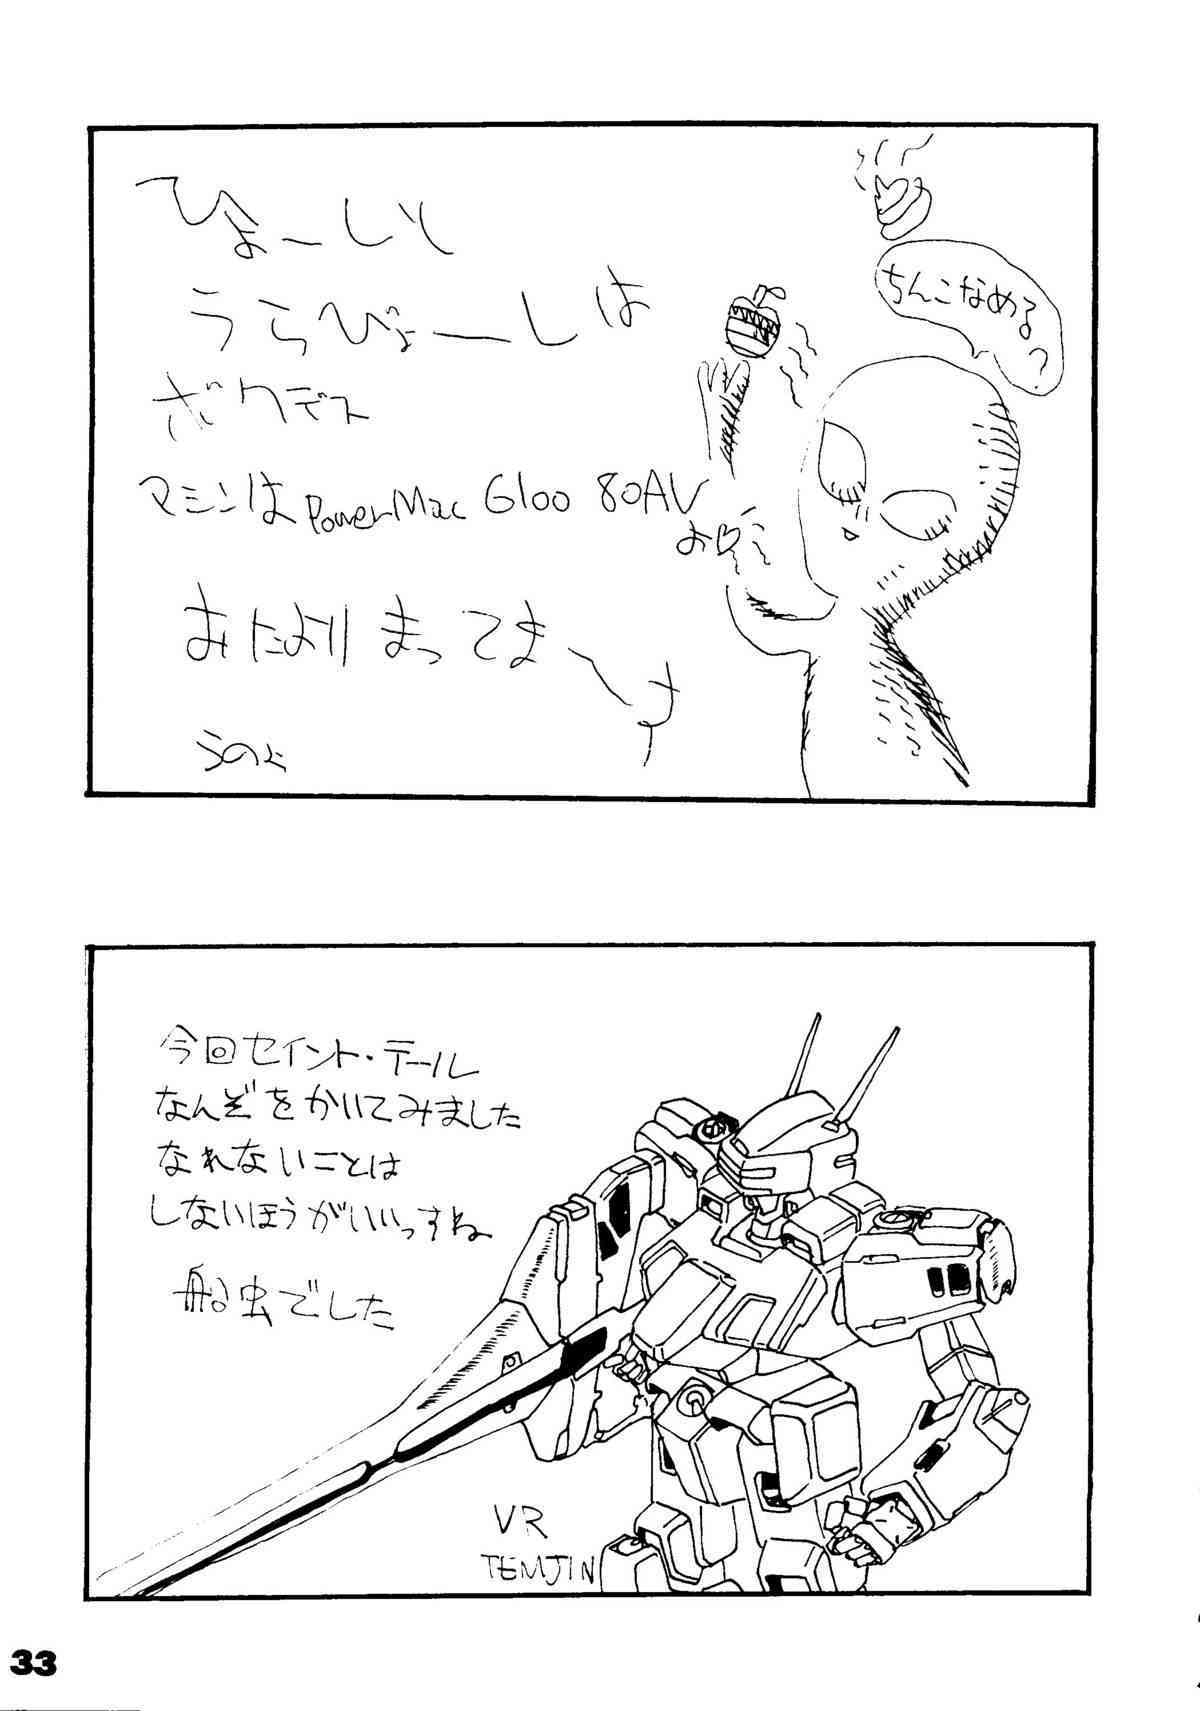 ひょーしと
うらびょーしは
ボクデス
マシンは PowerMac 6100 80AV
おたよりまってまーす
ちんこなめる?
今回セイント・テール
なんぞをかいてみました
なれないことは
しないほうがいいっすね
船虫でした
VR
TEMJIN
33